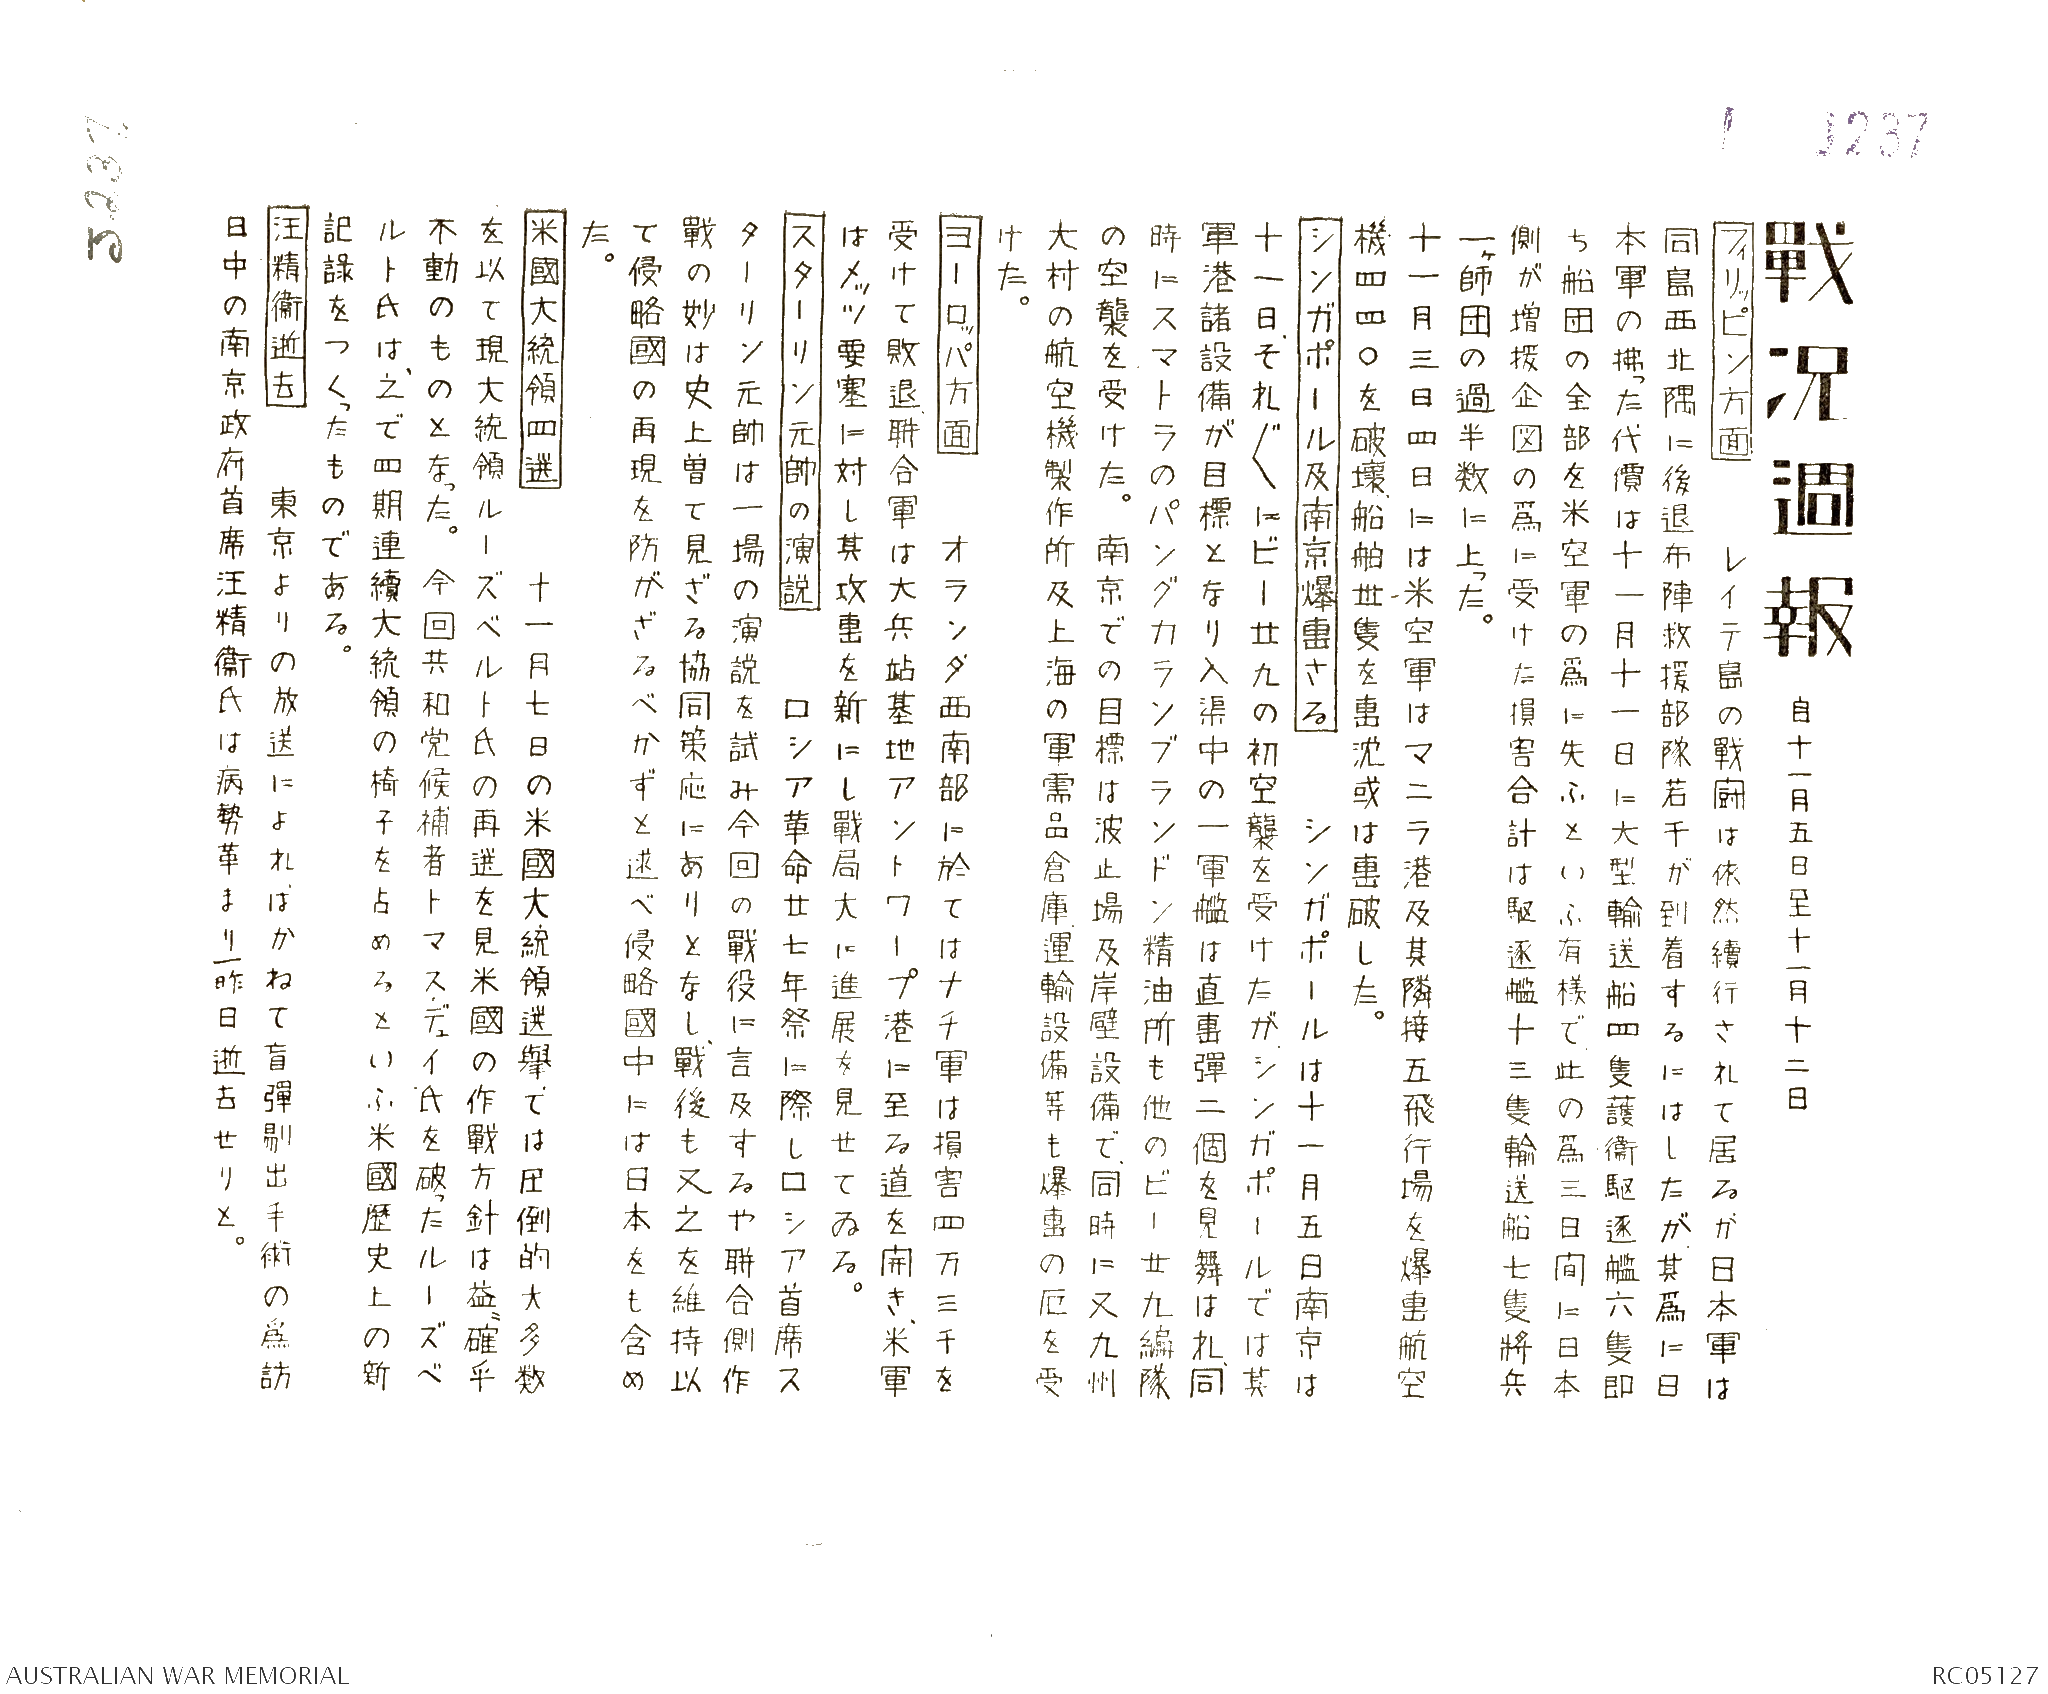 1 1237
戰況週報 自十一月五日至十一月十二日
フィリッピン方面 レイテ島の戰鬪は依然續行されて居るが日本軍は
同島西北隅に後退布陣救援部隊若干が到着するにはしたが、其爲に日
本軍の拂った代價は十一月十一日に大型輸送船四隻護衞駆逐艦六隻即
ち船団の全部を米空軍の爲に失ふといふ有様で此の爲三日間に日本
側が増援企図の爲に受けた損害合計は駆逐艦十三隻輸送船七隻將兵
一ヶ師団の過半数に上った。
十一月三日四日には米空軍はマニラ港及其隣接五飛行場を爆撃航空
機四四〇を破壞、船舶丗隻を撃沈或は撃破した。
シンガポール及南京爆撃さる シンガポールは十一月五日南京は
十一日、それ〲にビー廿九の初空襲を受けたが、シンガポールでは其
軍港諸設備が目標となり入渠中の一軍艦は直撃彈二個を見舞はれ、同
時にスマトラのパングカランブランドン精油所も他のビー廿九編隊
の空襲を受けた。南京での目標は波止場及岸壁設備で、同時に又九州
大村の航空機製作所及上海の軍需品倉庫運輸設備等も爆撃の厄を受
けた。
ヨーロッパ方面 オランダ西南部に於てはナチ軍は損害四万三千を
受けて敗退、聯合軍は大兵站基地アントワープ港に至る道を開き、米軍
はメッツ要塞に対し其攻撃を新にし戰局大に進展を見せてゐる。
スターリン元帥の演説 ロシア革命廿七年祭に際しロシア首席ス
ターリン元帥は一場の演説を試み今回の戰役に言及するや聯合側作
戰の妙は史上曽て見ざる協同策応にありとなし、戰後も又之を維持以
て侵略國の再現を防がざるべかずと述べ侵略國中には日本をも含め
た。
米國大統領四選 十一月七日の米國大統領選擧では圧倒的大多数
を以て現大統領ルーズベルト氏の再選を見米國の作戰方針は益〻確乎
不動のものとなった。今回共和党候補者トマス・デュイ氏を破ったルーズベ
ルト氏は、之で四期連續大統領の椅子を占めるといふ米國歴史上の新
記録をつくったものである。
汪精衞逝去 東京よりの放送によればかねて盲彈剔出手術の爲訪
日中の南京政府首席汪精衞氏は病勢革まり一昨日逝去せりと。
AUSTRALIAN WAR MEMORIAL
RC05127